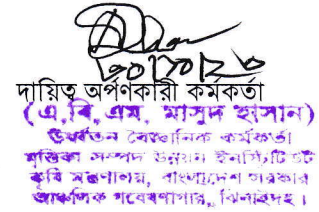 ২০/১০/২৩
দায়িত্ব অর্পণকারী কর্মকর্তা
(এ,বি,এম, মাসুদ হাসান)
উর্ধ্বতন বৈজ্ঞানিক কর্মকর্তা
মৃত্তিকা সম্পদ উন্নয়ন ইনস্টিটিউট
কৃষি মন্ত্রণালয়, বাংলাদেশ সরকার
আঞ্চলিক গবেষণাগার, ঝিনাইদহ।